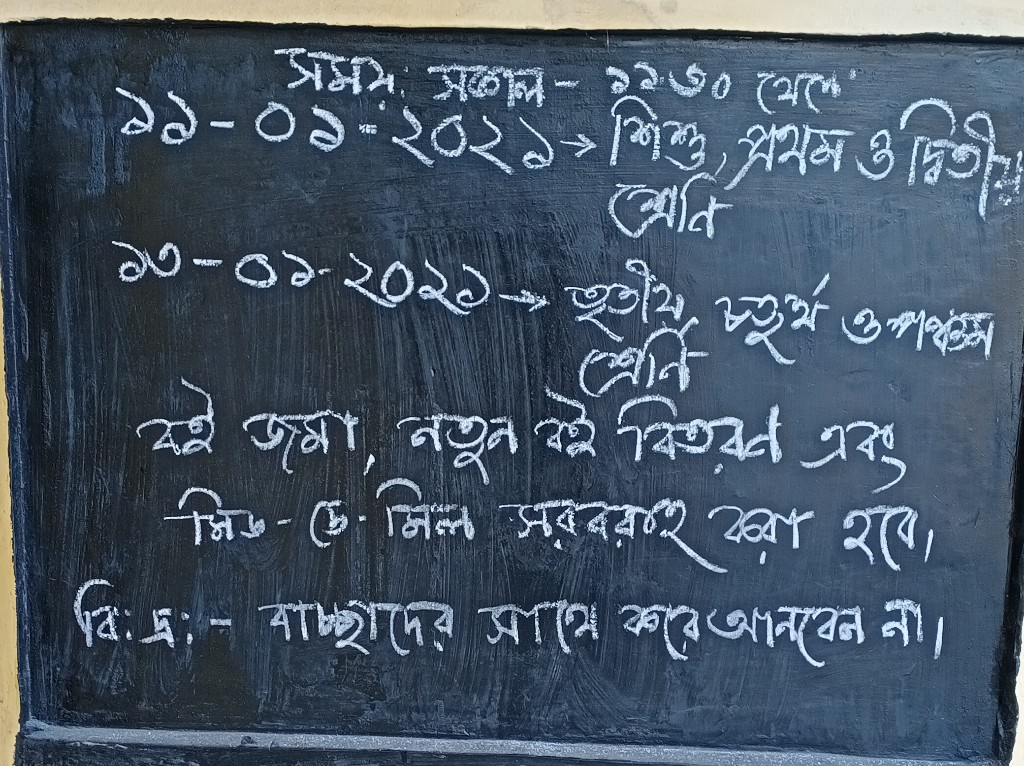 সময়: সকাল - ১১:৩০ থেকে
১১-০১-২০২১ → শিশু, প্রথম ও দ্বিতীয়
শ্রেণি
১৩-০১-২০২১ → তৃতীয়, চতুর্থ ও পঞ্চম
শ্রেণি
বই জমা, নতুন বই বিতরণ এবং
মিড-ডে-মিল সরবরাহ করা হবে।
বি: দ্র: - বাচ্ছাদের সাথে করে আনবেন না।